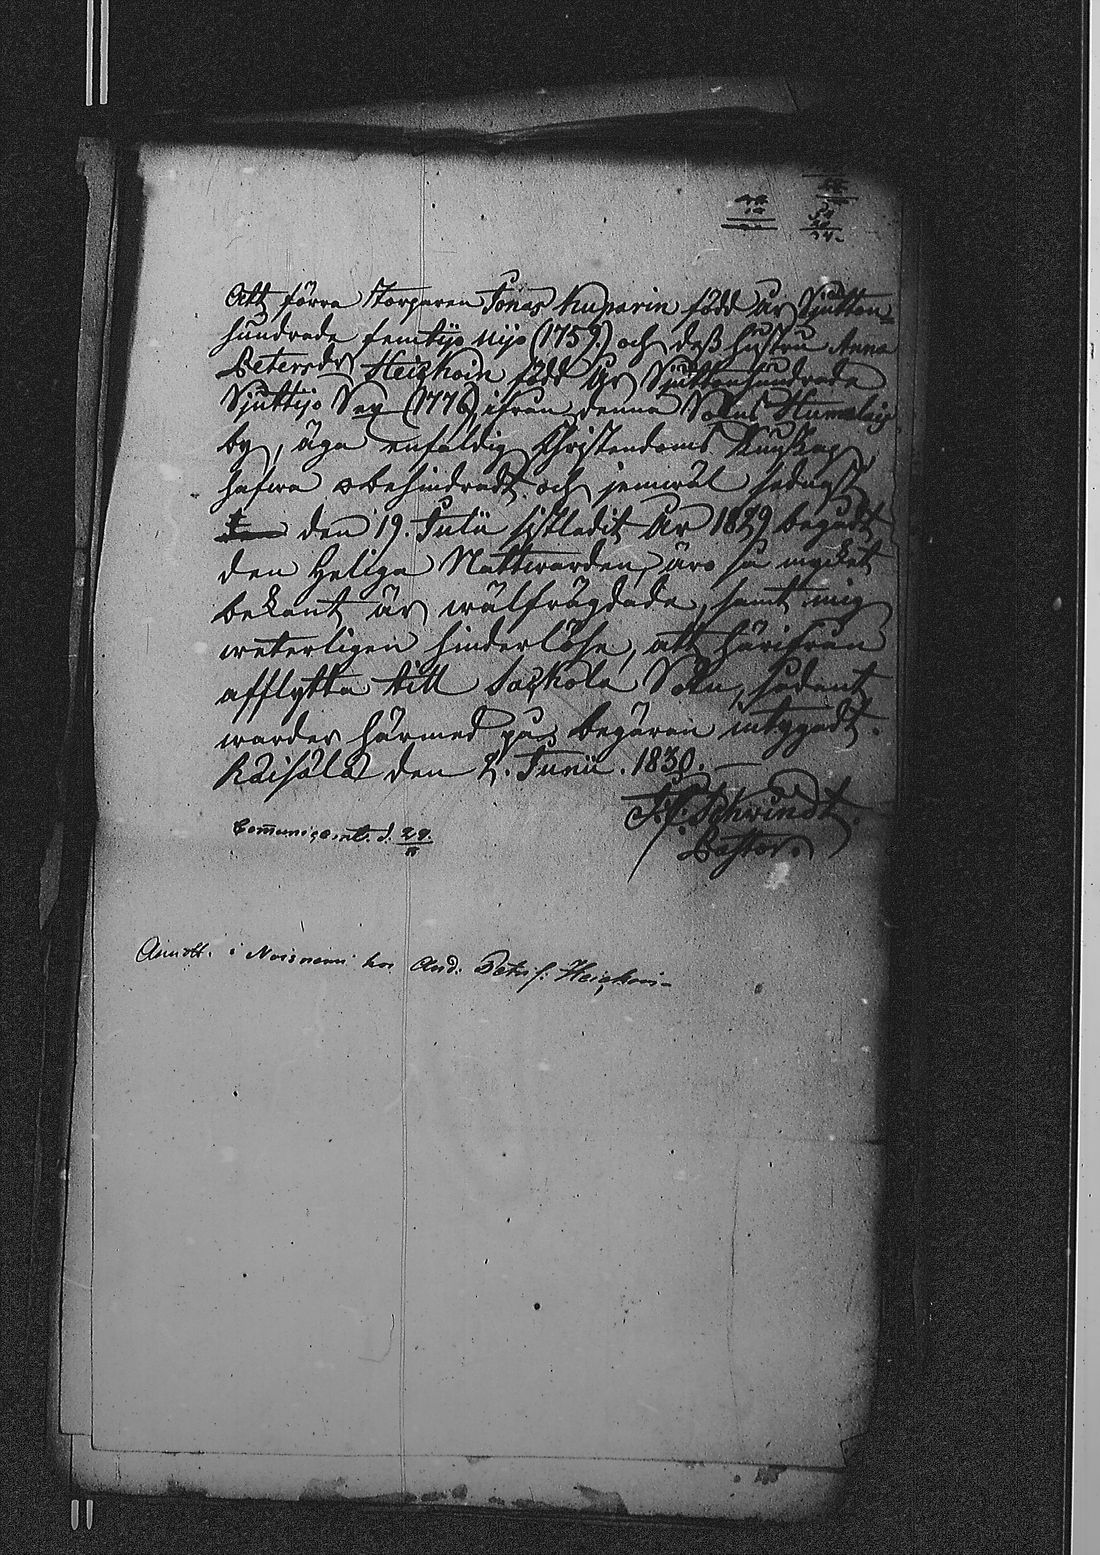 Att förra Torparen Jonas Kuparin född år Sjutton-
hundrade femtijo nijo (1759.) och dess hustru Anna
Petersdr Heiskoin född År Sjuttonhundrade
Sjuttijo Sex (1776) ifrån denna Sokns Humalais
by, äga enfaldig Christendoms Kunskap,
hafwa obehindradt och jemwäl sednast
den 19. Julii sistledit År 1829 begådt
den Heliga Nattwarden, äro så mycket
bekant är wälfrägdade, samt mig
weterligen hinderlöse, att härifrån
afflytta till Sackola Sokn, sådant
warder härmed på begäran intygadt.
Räisälä den 2. Junii. 1830.
Schwindt.
Pastor.
Communicant. d. 29.
i Noisniemi hos And. Petri s: Heiskoin